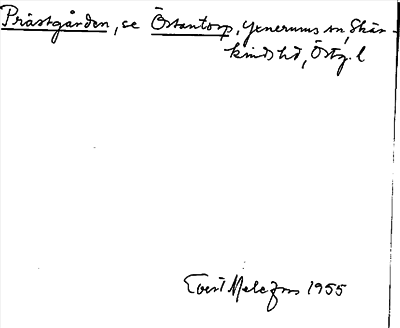 Prästgården, se Östantorp, Yxnerums sn, Skär-
kinds hd, Östg. l
Evert Melefors 1955